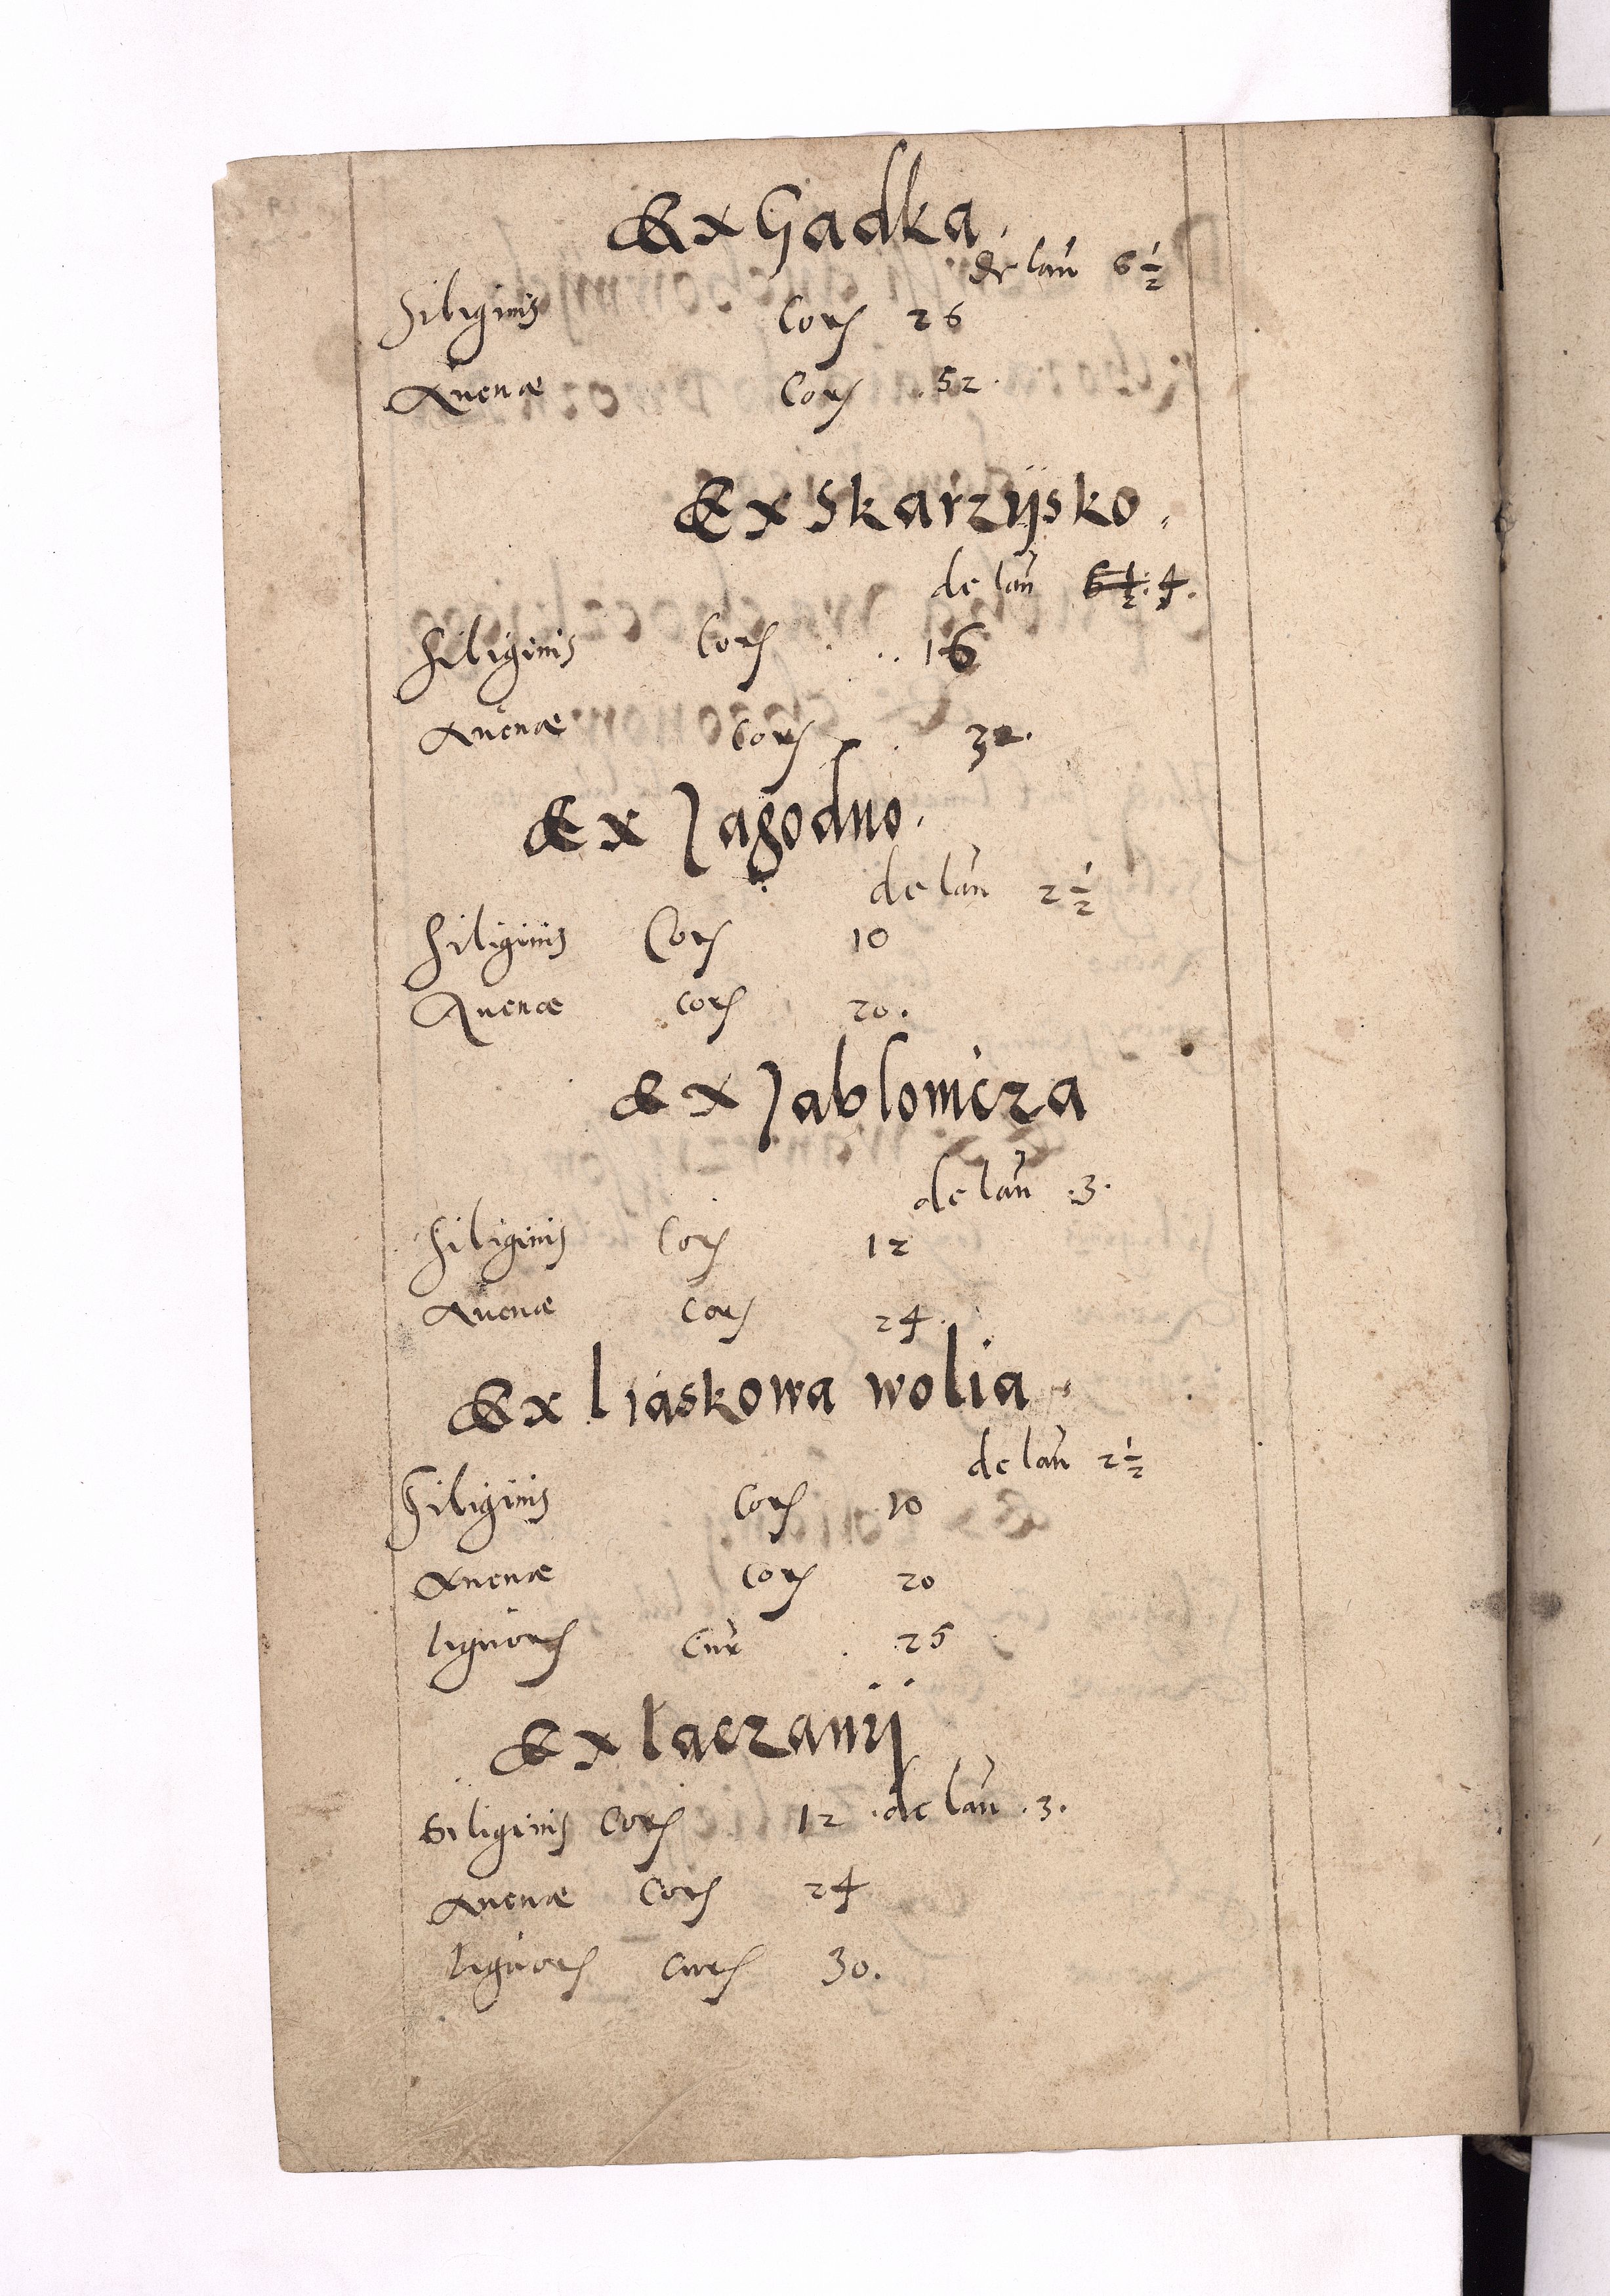 Ex Gadka.
de lan 6 1/2
Siliginis Cor 26
Auenæ Cor 52.
Ex Skarzÿsko.
de lan 6 1/2. 4.
Siliginis Cor 16
Auenæ Cor 32.
Ex Jagodno.
de lan 2 1/2
Siliginis Cor 10
Auenæ Cor 20.
Ex Jablonicza
de lan .3.
Siliginis Cor 12
Auenæ Cor 24.
Ex liaskowa wolia
de lan 2 1/2
Siliginis Cor 10
Auenæ Cor 20
lignor Cur 25
Ex łaczanÿ
Siliginis Cor 12 .de lan .3.
Auenæ Cor 24
lignor Cur 30.